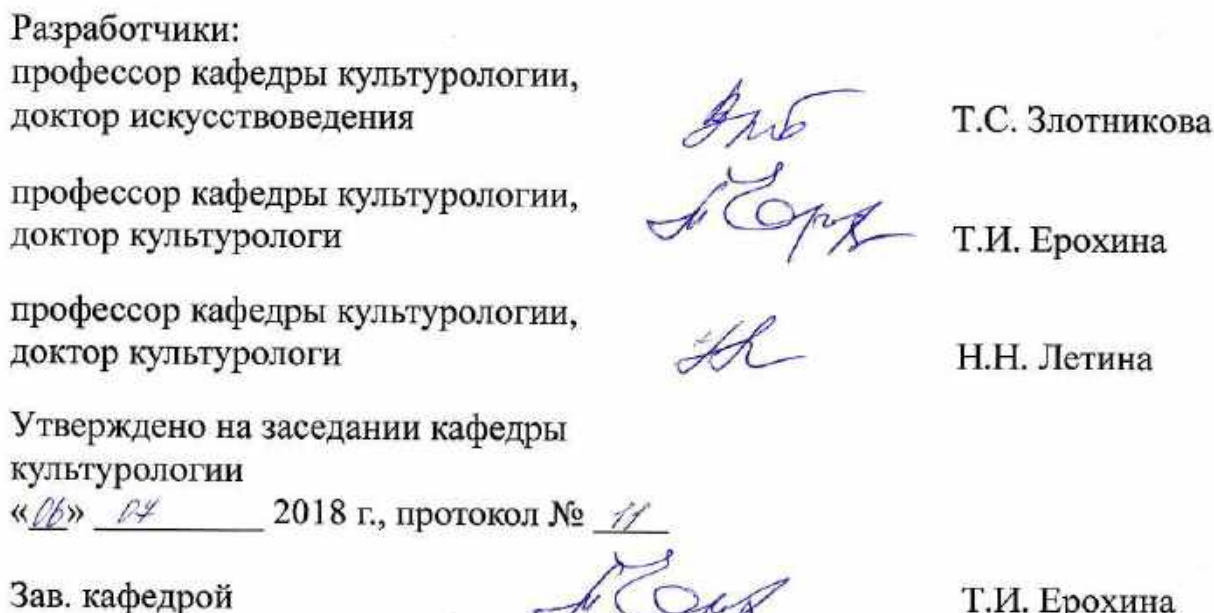 Разработчики:
профессор кафедры культурологии,
доктор искусствоведения Т.С. Злотникова
профессор кафедры культурологии,
доктор культурологи Т.И. Ерохина
профессор кафедры культурологии,
доктор культурологи Н.Н. Летина
Утверждено на заседании кафедры
культурологии
«06» 07 2018 г., протокол № 11
Зав. кафедрой Т.И. Ерохина